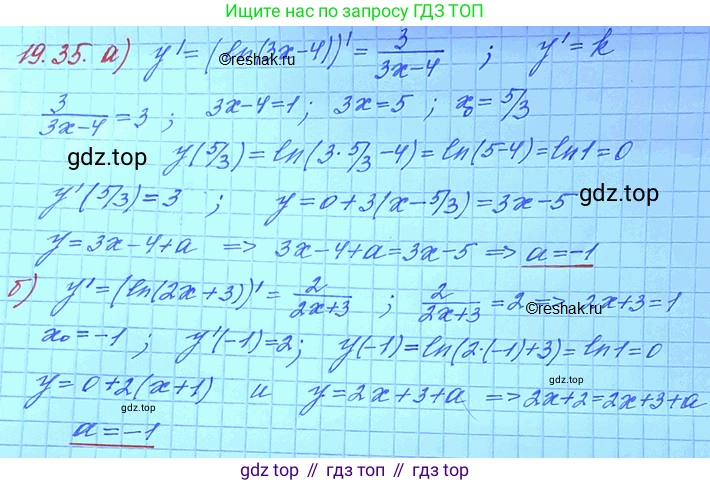 Ищите нас по запросу ГДЗ ТОП
19.35. а) y' = (ln(3x-4))' = 3/(3x-4) ; y' = k
©reshak.ru
3/(3x-4) = 3 ; 3x-4=1; 3x=5 ; x₀=5/3
gdz.top
y(5/3) = ln(3·5/3-4) = ln(5-4) = ln1 = 0
y'(5/3) = 3 ; y=0+3(x-5/3) = 3x-5
gdz.top
y=3x-4+a => 3x-4+a=3x-5 => a=-1
б) y' = (ln(2x+3))' = 2/(2x+3) ; 2/(2x+3) = 2 => 2x+3=1
©reshak.ru
x₀=-1 ; y'(-1)=2; y(-1)=ln(2·(-1)+3)=ln1=0
y=0+2(x+1) и y=2x+3+a => 2x+2=2x+3+a
gdz.top
gdz.top
a=-1
gdz top // гдз топ // gdz top